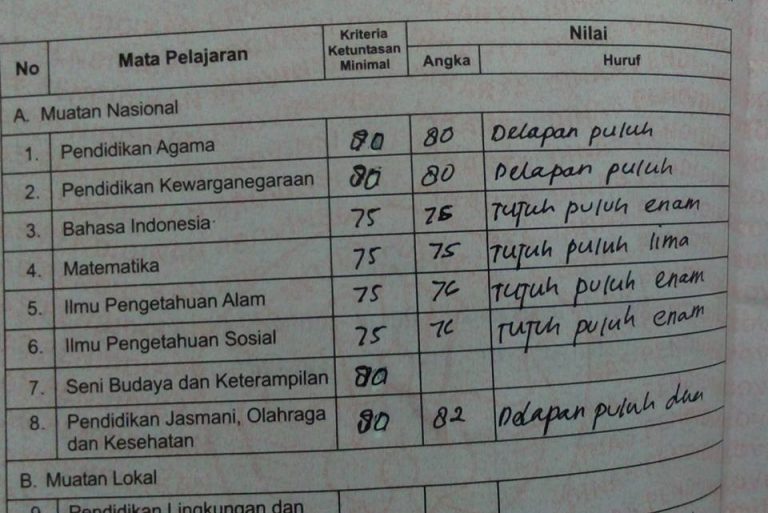 No Mata Pelajaran Kriteria Ketuntasan Minimal Nilai
Angka Huruf
A. Muatan Nasional
1. Pendidikan Agama 80 80 Delapan puluh
2. Pendidikan Kewarganegaraan 80 80 Delapan puluh
3. Bahasa Indonesia 75 76 Tujuh puluh enam
4. Matematika 75 75 Tujuh puluh lima
5. Ilmu Pengetahuan Alam 75 76 Tujuh puluh enam
6. Ilmu Pengetahuan Sosial 75 76 Tujuh puluh enam
7. Seni Budaya dan Keterampilan 80
8. Pendidikan Jasmani, Olahraga 80 82 Delapan puluh dua
dan Kesehatan
B. Muatan Lokal
9. Pendidikan Lingkungan dan